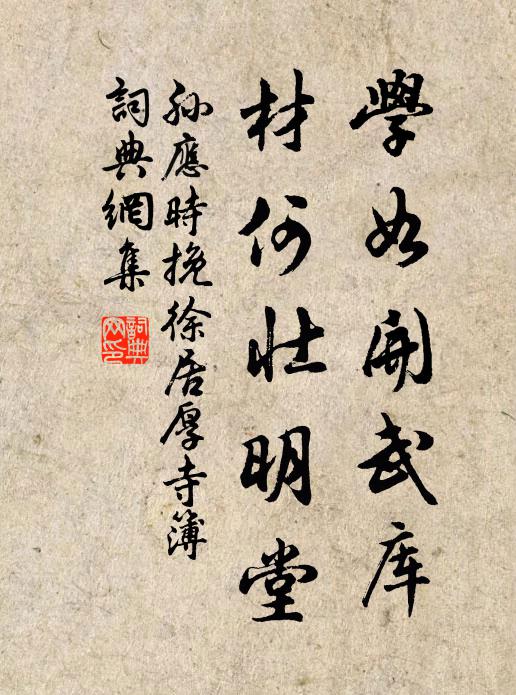 學如開武库
材何壮明堂
孙應時挽徐居厚寺簿
詞典網集
詞典網印